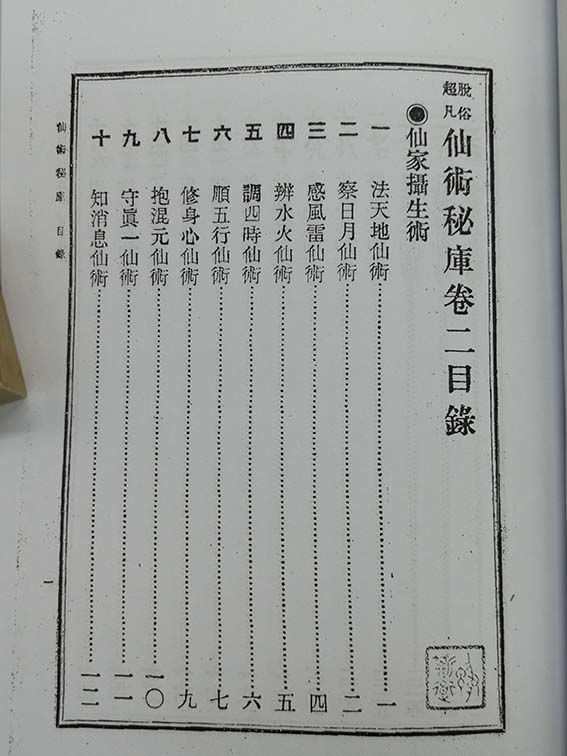 脫俗超凡 仙術秘庫卷二目錄
●仙家攝生術
一 法天地仙術……一
二 察日月仙術……二
三 感風雷仙術……四
四 辨水火仙術……五
五 調四時仙術……六
六 順五行仙術……七
七 修身心仙術……九
八 抱混元仙術……一〇
九 守眞一仙術……一一
十 知消息仙術……一二
仙術秘庫 目錄 一